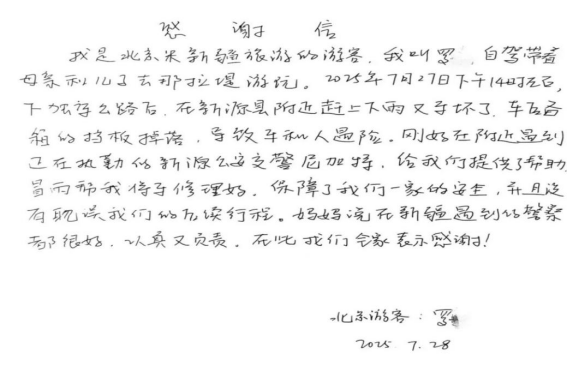 感 谢 信
我是北京来新疆旅游的游客,我叫罗,自驾带着
母亲和儿子去那拉提游玩。2025年7月27日下午14时左右,
下独库公路后,在新源县附近赶上下雨又车坏了,车后备
箱的挡板掉落,导致车和人遇险。刚好在附近遇到
正在执勤的新源公安交警尼加特,给我们提供了帮助,
冒雨帮我将车修理好,保障了我们一家的安全,并且没
有耽误我们的后续行程。妈妈说在新疆遇到的警察
都很好,认真又负责。在此我们全家表示感谢!
北京游客:罗
2025 7.28